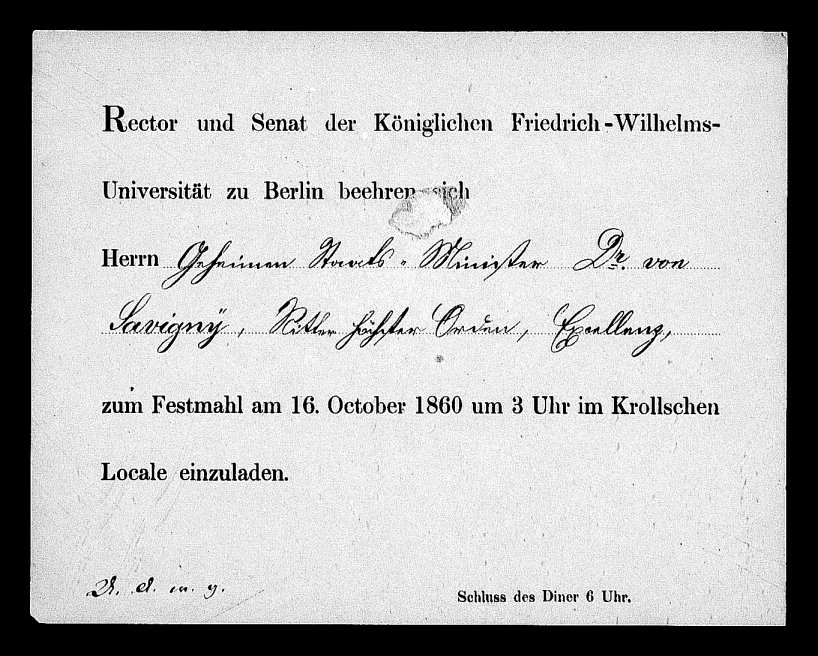 Rector und Senat der Königlichen Friedrich-Wilhelms-
Universität zu Berlin beehren sich
Herrn Geheimen Staats-Minister Dr. von
Savigny, Ritter höchster Orden, Excellenz,
zum Festmahl am 16. October 1860 um 3 Uhr im Krollschen
Locale einzuladen.
U. A. w. g.
Schluss des Diner 6 Uhr.